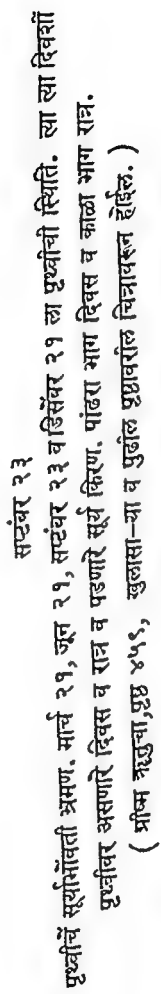 सप्टंबर २३
पृथ्वीचें सूर्याभोंवती भ्रमण. मार्च २१, जून २१, सप्टंबर २३ व डिसेंबर २१ ला पृथ्वीची स्थिति. त्या त्या दिवशीं
पृथ्वीवर असणारे दिवस व रात्र व पडणारे सूर्य किरण. पांढरा भाग दिवस व काळा भाग रात्र.
( ग्रीष्म ऋतुचा, पृष्ठ ४५९, खुलासा-या व पुढील पृष्ठावरील चित्रावरून होईल. )